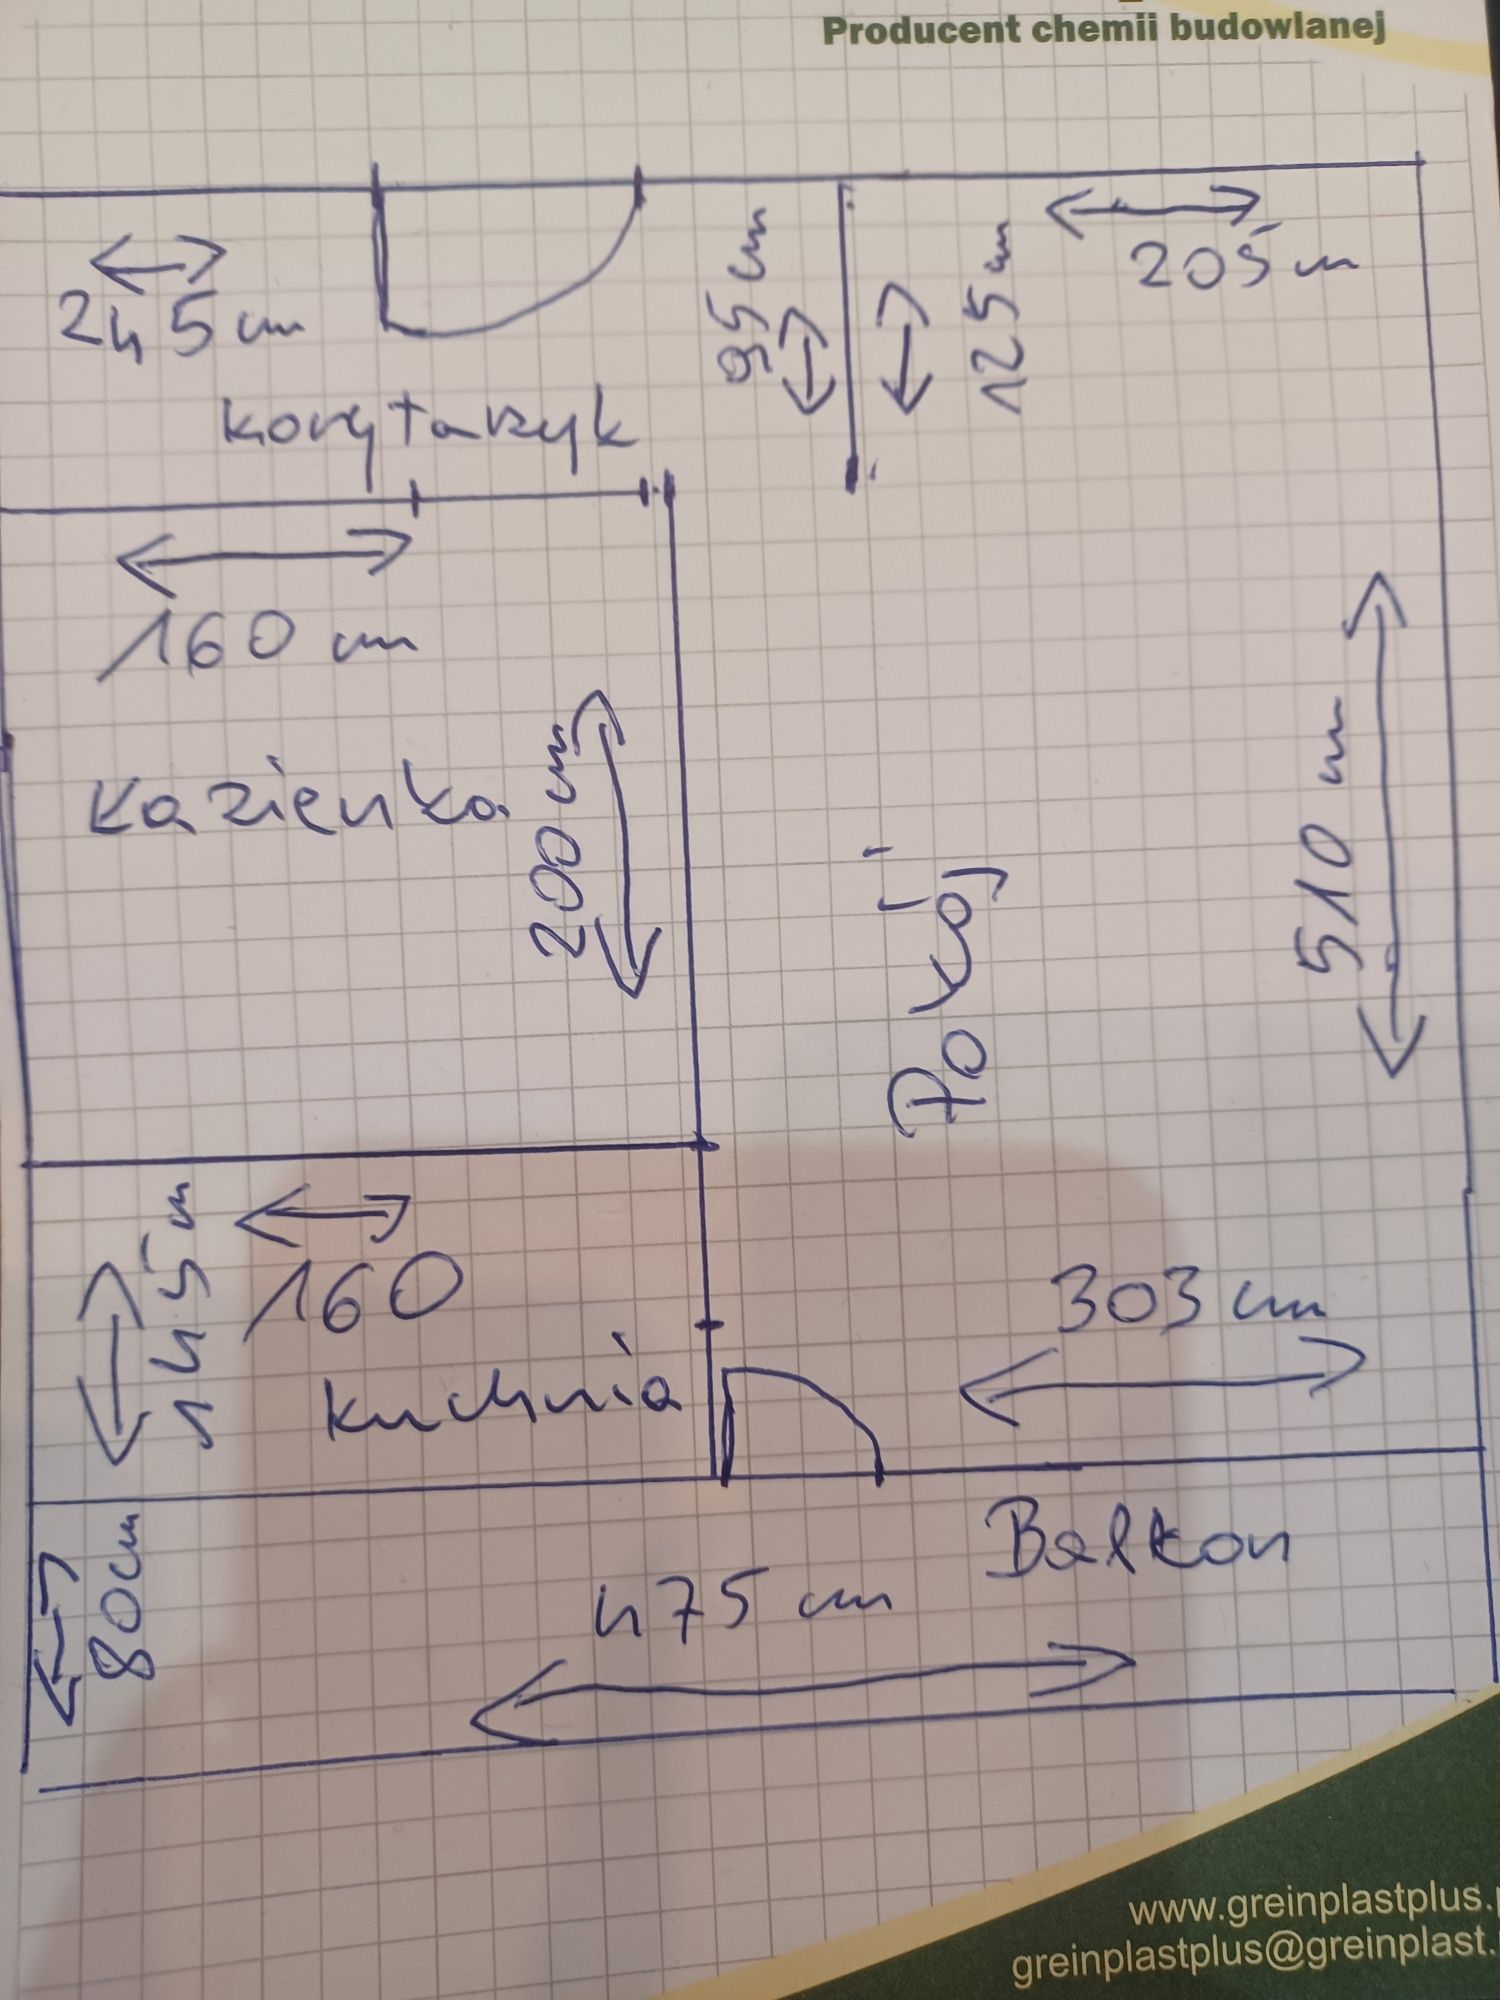 Producent chemii budowlanej
245 cm
95 cm
125 cm
205 cm
korytarzyk
160 cm
kazienka
200 cm
Pokój
510 cm
145 cm
160
kuchnia
303 cm
80cm
475 cm
Balkon
www.greinplastplus.
greinplastplus@greinplast.